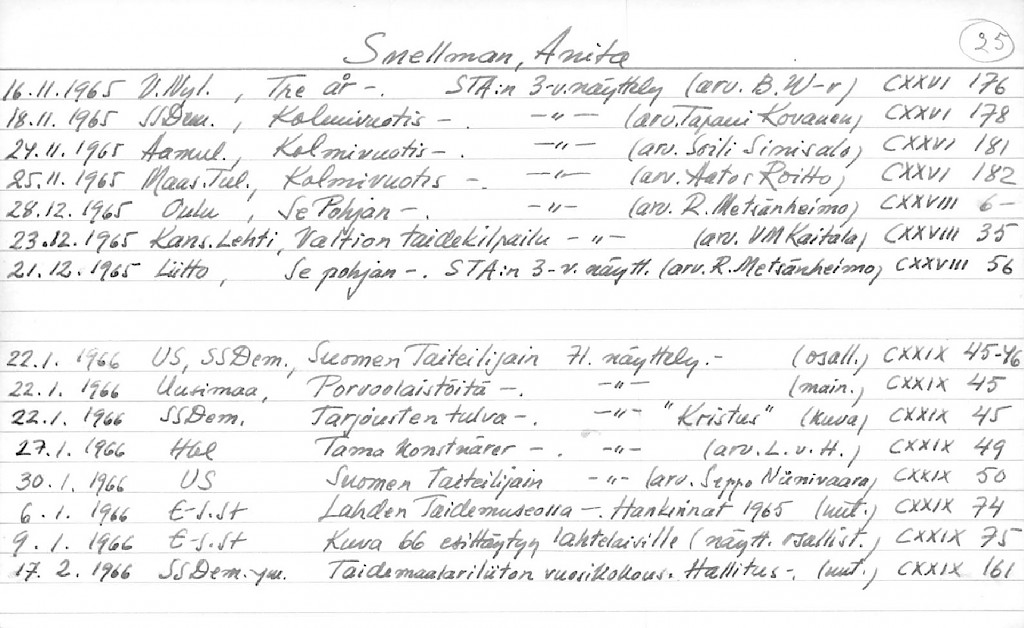 25
Snellman, Anita
16.11.1965 V.Nyl., Tre år -. STA:n 3-v.näyttely (arv. B. W-r) CXXVI 176
18.11.1965 SSDem., Kolmivuotis -. -"- (arv. Tapani Kovanen) CXXVI 178
24.11.1965 Aamul., Kolmivuotis -. -"- (arv. Soili Sinisalo) CXXVI 181
25.11.1965 Maas.Tul., Kolmivuotis -. -"- (arv. Aator Roitto) CXXVI 182
28.12.1965 Oulu, Se Pohjan -. -"- (arv. R. Metsänheimo) CXXVIII 6-
23.12.1965 Kans.Lehti, Valtion taidekilpailu -"- (arv. VM Kaitala) CXXVIII 35
21.12.1965 Liitto, Se pohjan -. STA:n 3-v. näytt. (arv. R. Metsänheimo) CXXVIII 56
22.1. 1966 US, SSDem., Suomen Taiteilijain 71. näyttely.- (osall.) CXXIX 45-46
22.1. 1966 Uusimaa, Porvoolaistöitä -. -"- (main.) CXXIX 45
22.1. 1966 SSDem. Tarjousten tulva -. -"- "Kristus" (kuva) CXXIX 45
27.1. 1966 Hbl Tama konstnärer -. -"- (arv. L. v. H.) CXXIX 49
30.1. 1966 US Suomen Taiteilijain -"- (arv. Seppo Niinivaara) CXXIX 50
6.1. 1966 E-S.St Lahden Taidemuseossa -. Hankinnat 1965 (uut.) CXXIX 74
9.1. 1966 E-S.St Kuva 66 esittäytyy lahtelaisille (näytt. osallist.) CXXIX 75
17.2. 1966 SSDem.-ym. Taidemaalariliiton vuosikokous. Hallitus -. (uut.) CXXIX 161